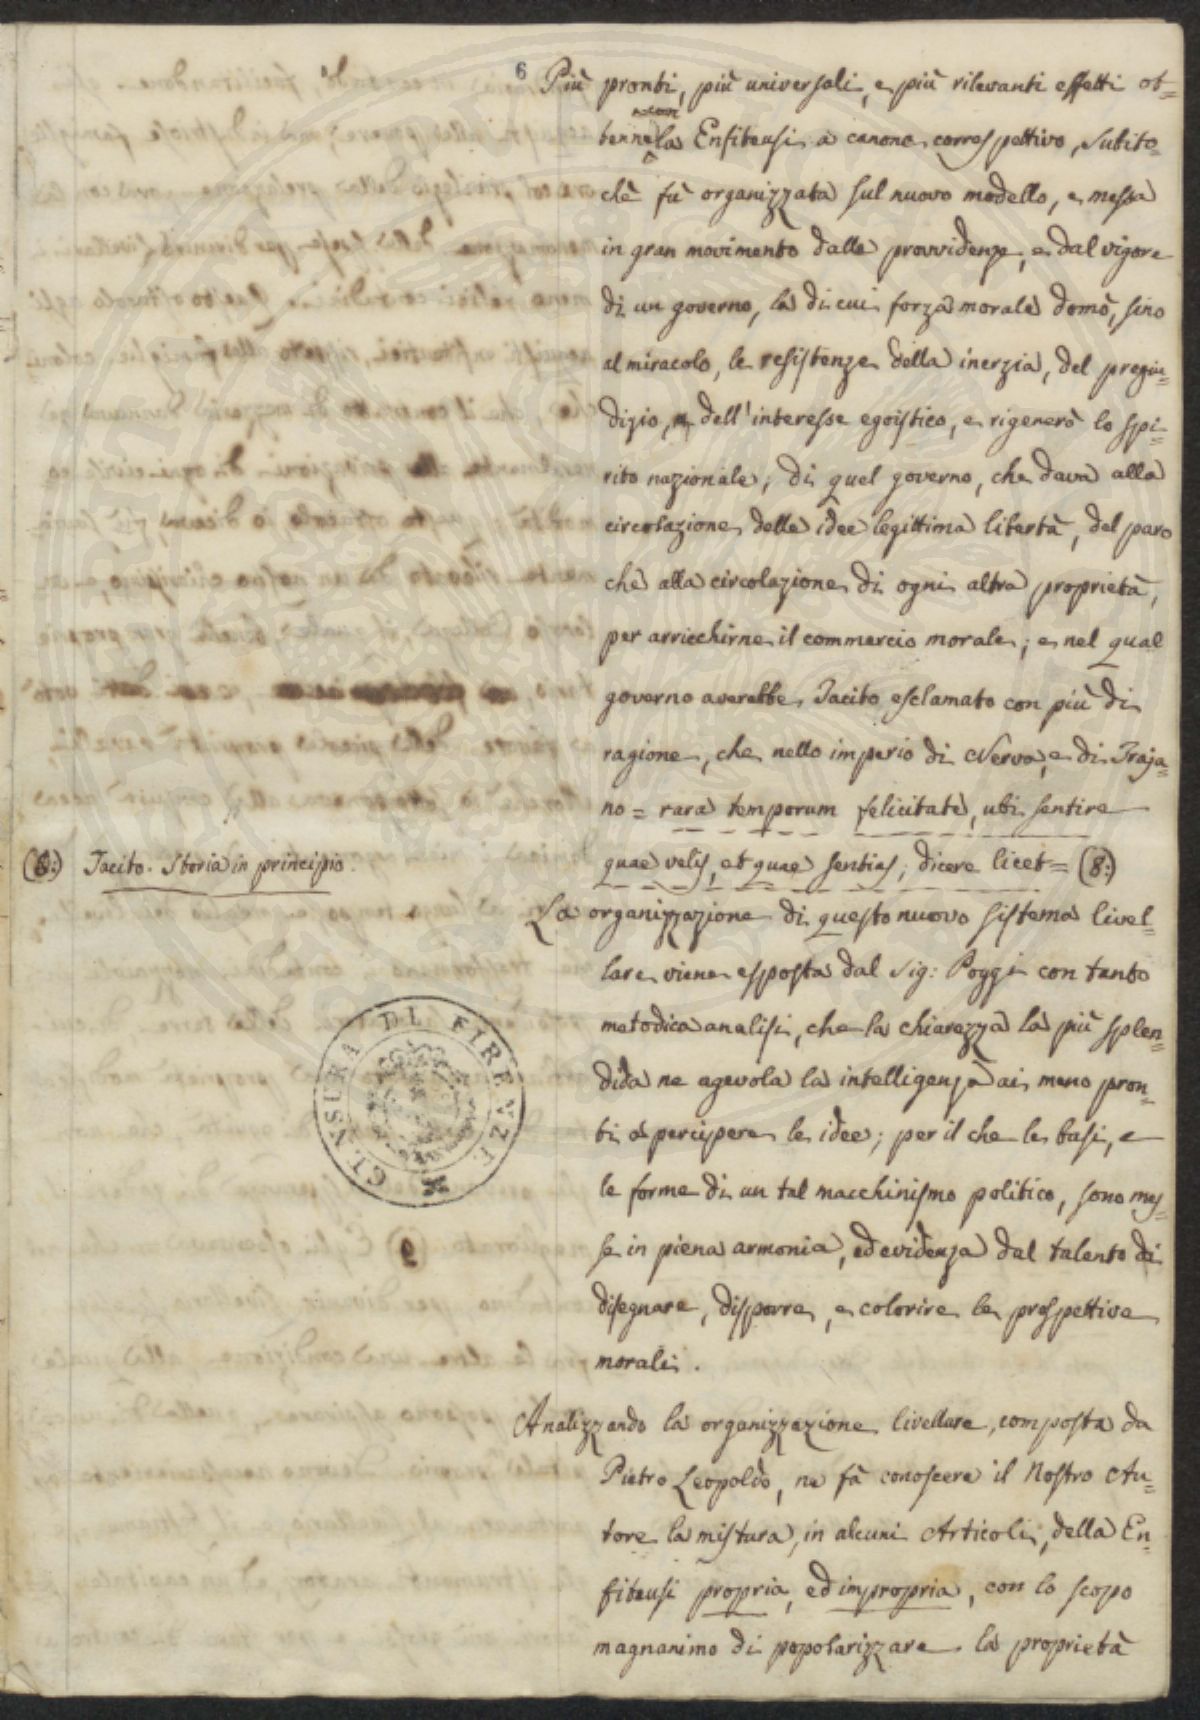 6
Più pronti, più universali, e più rilevanti effetti ot=
tenne la Enfiteusi a canone correspettivo, subito-
chè fù organizzata sul nuovo modello, e messa
in gran movimento dalle provvidenze, e dal vigore
di un governo, la di cui forza morale domò, sino
al miracolo, le resistenze della inerzia, del pregiu=
dizio, dell'interesse egoistico, e rigenerò lo spi=
rito nazionale; di quel governo, che dava alla
circolazione delle idee legittima libertà, del paro
chè alla circolazione di ogni altra proprietà,
per arricchirne il commercio morale; e nel qual
governo averebbe Tacito esclamato con più di
ragione, che nello imperio di Nerva, e di Traja=
no = rara temporum felicitate, ubi sentire
quae velis, et quae sentias, dicere licet = (8:)
(8:) Tacito. Storia in principio.
La organizzazione di questo nuovo sistema livel=
lare viene esposta dal Sig: Poggi con tanto
metodica analisi, che la chiarezza la più splen=
dida ne agevola la intelligenza ai meno pron=
ti a percipere le idee; per il che le basi, e
le forme di un tal macchinismo politico, sono mes=
se in piena armonia, ed evidenza dal talento di
disegnare, disporre, e colorire le prospettive
morali.
Analizzando la organizzazione livellare, composta da
Pietro Leopoldo, ne fà conoscere il Nostro Au=
tore la mistura, in alcuni Articoli, della En=
fiteusi propria, ed impropria, con lo scopo
magnanimo di popolarizzare la proprietà
CENSURA DI FIRENZE